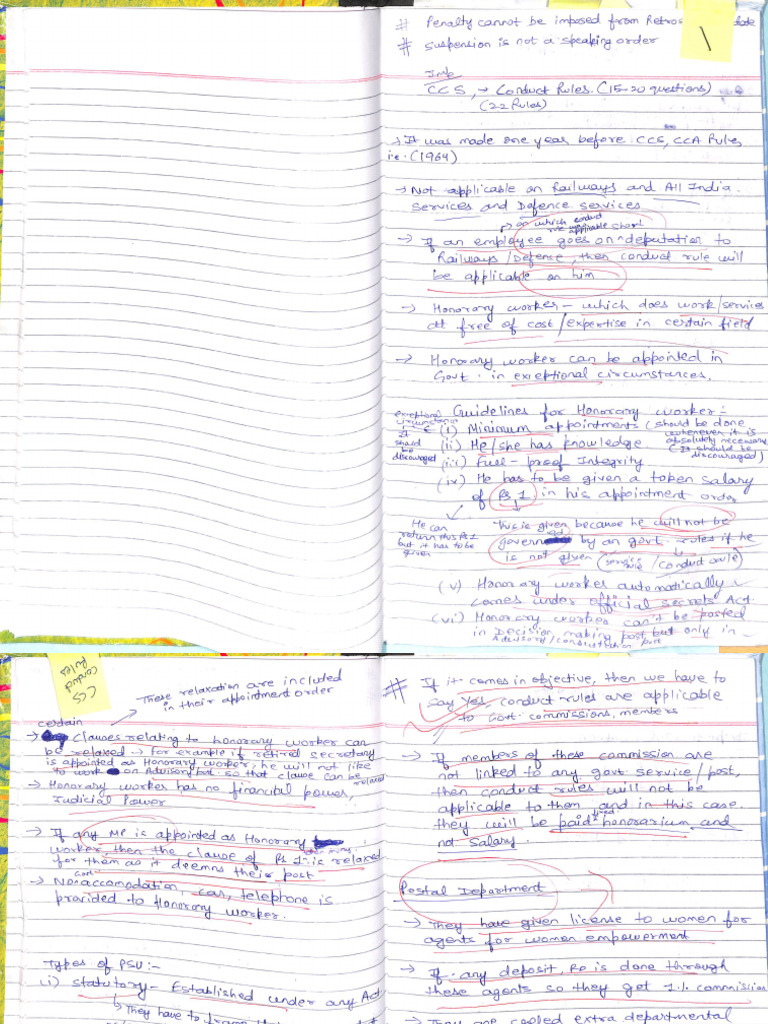 # Penalty cannot be imposed from Retros date
# suspension is not a speaking order
\
Imp
CCS, → Conduct Rules. (15-20 questions)
(22 Rules)
→ It was made one year before CCS, CCA Rule,
i.e. (1964)
→ Not applicable on Railways and All India
Services and Defence services
→ on which ended
applicable
→ If an employee goes on deputation to
Railways/Defence, then conduct rule will
be applicable on him
→ Honorary worker - which does work/services
at free of cost/expertise in certain field
→ Honorary worker can be appointed in
Govt. in exceptional circumstances.
Guidelines for Honorary worker :-
exceptional
circumstances
It
should
be
discouraged
(i) Minimum appointments (should be done
whenever it is
absolutely necessary
(It should be
discouraged)
(ii) He/she has knowledge
(iii) Full-proof Integrity
(iv) He has to be given a token salary
of Rs 1 in his appointment order
He can
return this Rs 1
but it has to be
given
This is given because he will not be
governed by an govt. rules if he
is not given (service rule / conduct rule)
(v) Honorary worker automatically
comes under official secrets Act
(vi) Honorary worker can't be posted
in Decision making post but only in
Advisory/consultation post
CCS
Conduct
Rules
These relaxation are included
in their appointment order
certain
→ Clauses relating to honorary worker can
be relaxed → for example if retired secretary
is appointed as Honorary worker, he will not like
to work on Advisory but so that clause can be relaxed
→ Honorary worker has no financial power,
Judicial Power
→ If any MP is appointed as Honorary
worker then the clause of Rs 1 is relaxed
for them as it deemns their post
Govt.
→ No accomodation, car, telephone is
provided to Honorary worker.
Types of PSU :-
(i) Statutory - Established under any Act
↳ They have to frame their
# If it comes in objective, then we have to
say Yes, conduct rules are applicable
to Govt. commissions, members
→ If members of these commission are
not linked to any govt service/post,
then conduct rules will not be
applicable to them and in this case
they will be paid fixed honorarium and
not salary.
Postal Department
→ They have given license to women for
agents for women empowerment
→ If any deposit, RD is done through
these agents so they get 1% commission
→ They are called extra departmental